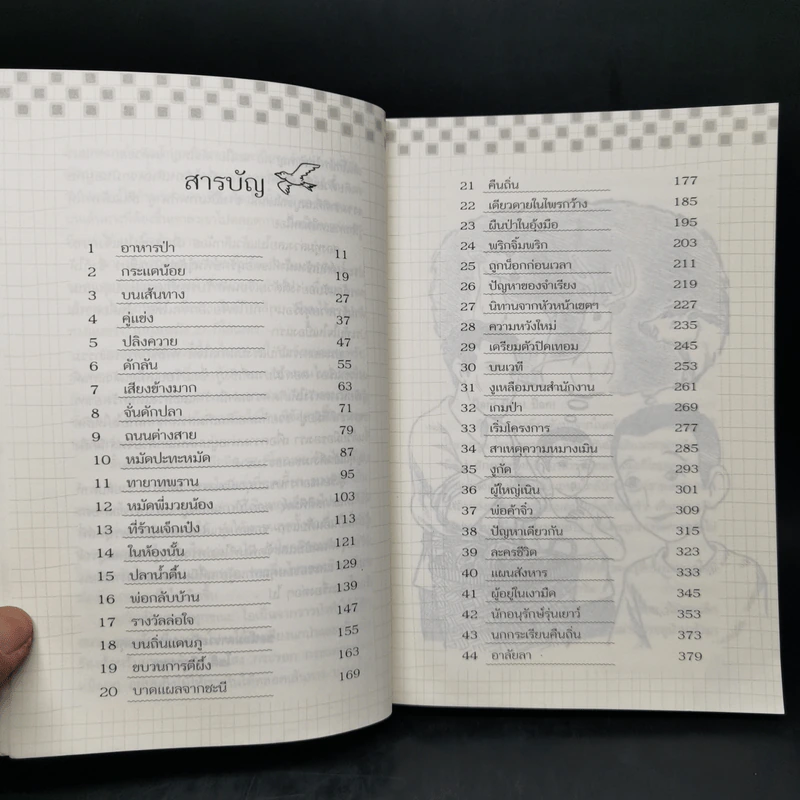 สารบัญ
1 อาหารป่า 11
2 กระแตน้อย 19
3 บนเส้นทาง 27
4 คู่แข่ง 37
5 ปลิงควาย 47
6 ดักลัน 55
7 เสียงช้างมาก 63
8 จั่นดักปลา 71
9 ถนนต่างสาย 79
10 หมัดปะทะหมัด 87
11 ทายาทพราน 95
12 หมัดพี่มวยน้อง 103
13 ที่ร้านเจ็กเป๋ง 113
14 ในห้องนั้น 121
15 ปลาน้ำตื้น 129
16 พ่อกลับบ้าน 139
17 รางวัลล่อใจ 147
18 บนถิ่นแดนภู 155
19 ขบวนการตีผึ้ง 163
20 บาดแผลจากชะนี 169
21 คืนถิ่น 177
22 เดียวดายในไพรกว้าง 185
23 ผืนป่าในอุ้งมือ 195
24 พริกจิ้มพริก 203
25 ถูกน็อกก่อนเวลา 211
26 ปัญหาของจำเรียง 219
27 นิทานจากหัวหน้าเขตฯ 227
28 ความหวังใหม่ 235
29 เตรียมตัวปิดเทอม 245
30 บนเวที 253
31 งูเหลือมบนสำนักงาน 261
32 เกมป่า 269
33 เริ่มโครงการ 277
34 สาเหตุความหมางเมิน 285
35 งูกัด 293
36 ผู้ใหญ่เนิน 301
37 พ่อค้าจิ๋ว 309
38 ปัญหาเดียวกัน 315
39 ละครชีวิต 323
40 แผนสังหาร 333
41 ผู้อยู่ในเงามืด 345
42 นักอนุรักษ์รุ่นเยาว์ 353
43 นกกระเรียนคืนถิ่น 373
44 อาลัยลา 379